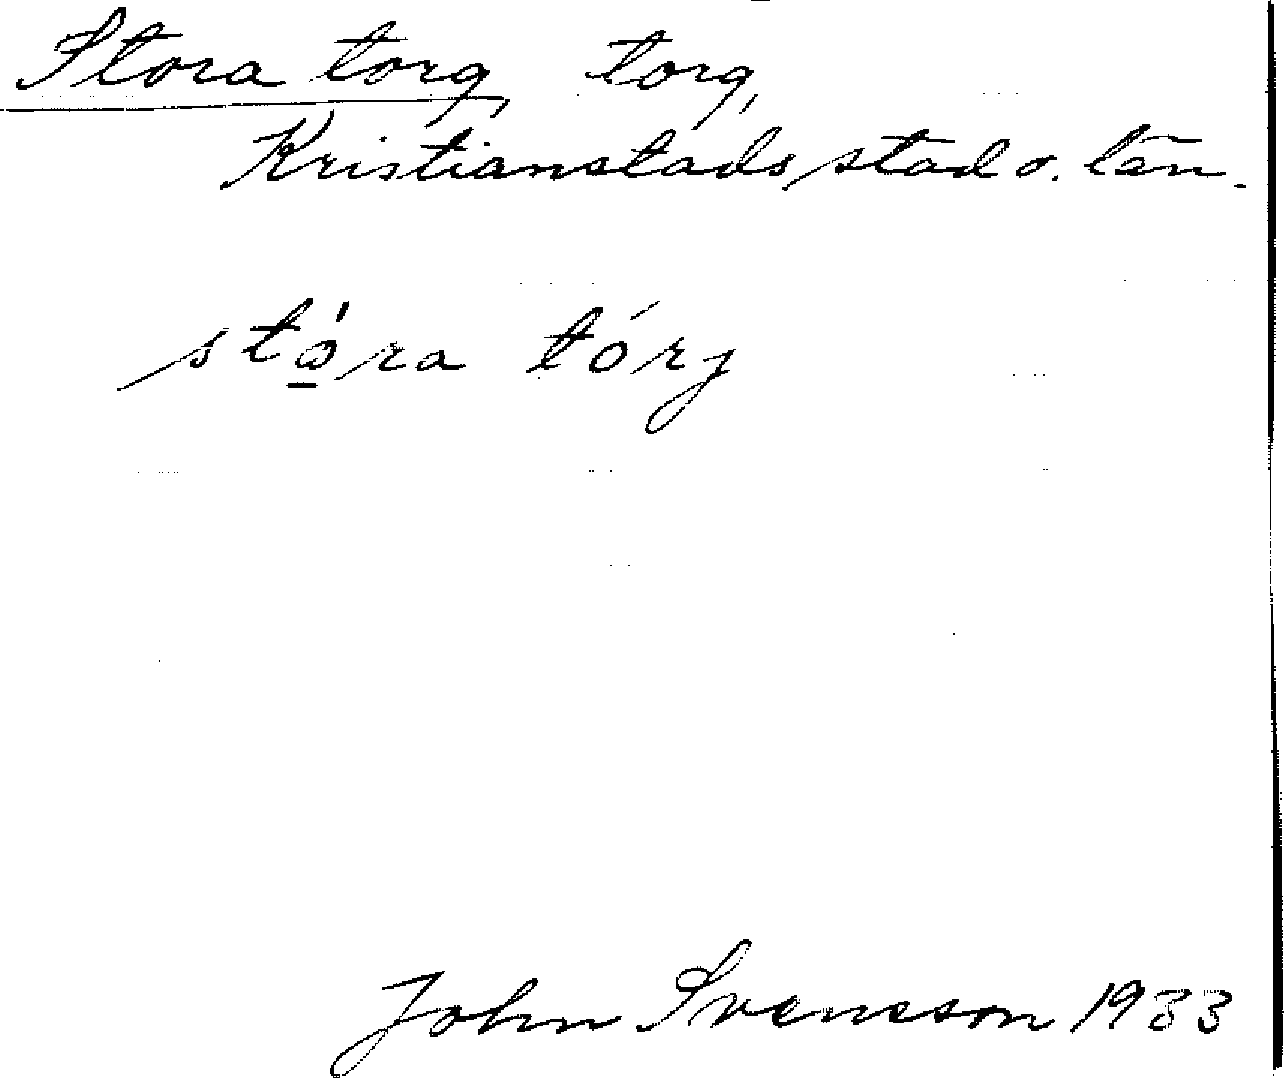 Stora torg, torg,
Kristianstads stad o. län.
stó̱ra tórj
John Svensson 1933